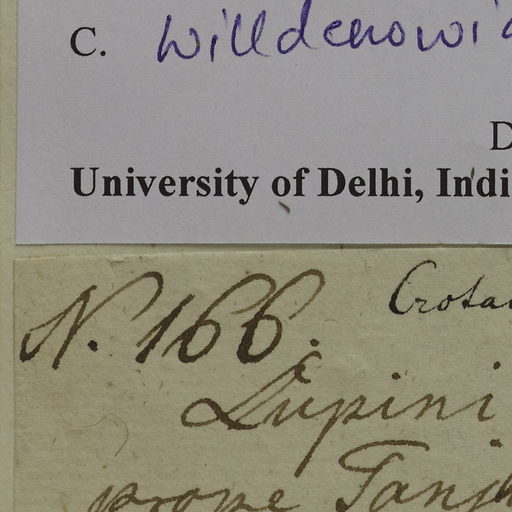 C. willdenowi
D
University of Delhi, Indi
N. 166. Crota
Lupini
prope Tanj